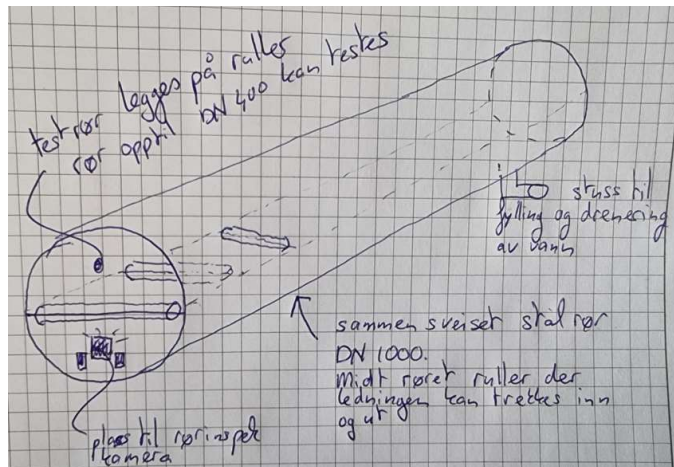 testrør legges på ruller
rør opptil DN 400 kan testes
stuss til
fylling og drenering
av vann
sammen sveiset stål rør
DN 1000.
Midt røret ruller der
ledningen kan trekkes inn
og ut
plass til rørinspek
kamera